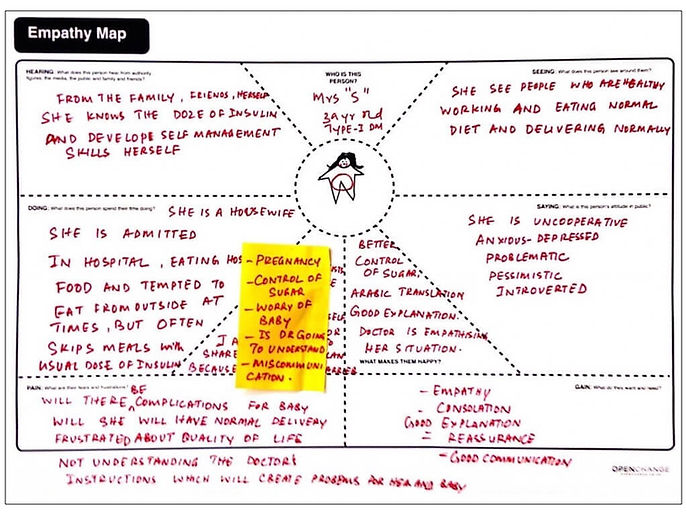 Empathy Map
HEARING: What does this person hear from authority
figures, the media, the public and family and friends?
FROM THE FAMILY, FRIENDS, HERSELF
SHE KNOWS THE DOZE OF INSULIN
AND DEVELOPE SELF MANAGEMENT
SKILLS HERSELF
WHO IS THIS
PERSON?
Mrs "S"
yr old
TYPE-I DM
SEEING: What does this person see around them?
SHE SEE PEOPLE WHO ARE HEALTHY
WORKING AND EATING NORMAL
DIET AND DELIVERING NORMALLY
DOING: What does this person spend their time doing?
SHE IS A HOUSEWIFE
SHE IS ADMITTED
IN HOSPITAL, EATING HOS
FOOD AND TEMPTED TO
EAT FROM OUTSIDE AT
TIMES, BUT OFTEN
SKIPS MEALS with
USUAL DOSE OF INSULIN
SHARE
BECAUSE
- PREGNANCY
- CONTROL OF
SUGAR
- WORRY OF
BABY
- IS DR GOING
TO UNDERSTAND
- MISCOMMUNI
CATION.
BETTER
CONTROL
OF SUGAR,
ARABIC TRANSLATION
GOOD EXPLANATION.
DOCTOR IS EMPATHISING
HER SITUATION.
WHAT MAKES THEM HAPPY?
SAYING: What is this person's attitude in public?
SHE IS UNCOOPERATIVE
ANXIOUS-DEPRESSED
PROBLEMATIC
PESSIMISTIC
INTROVERTED
PAIN: What are their fears and frustrations?
WILL THERE BE COMPLICATIONS FOR BABY
WILL SHE WILL HAVE NORMAL DELIVERY
FRUSTRATED ABOUT QUALITY OF LIFE
NOT UNDERSTANDING THE DOCTOR'S
INSTRUCTIONS WHICH WILL CREATE PROBLEMS FOR HER AND BABY
GAIN: What do they want and need?
- EMPATHY
- CONSOLATION
GOOD EXPLANATION
= REASSURANCE
- GOOD COMMUNICATION
OPENCHANGE